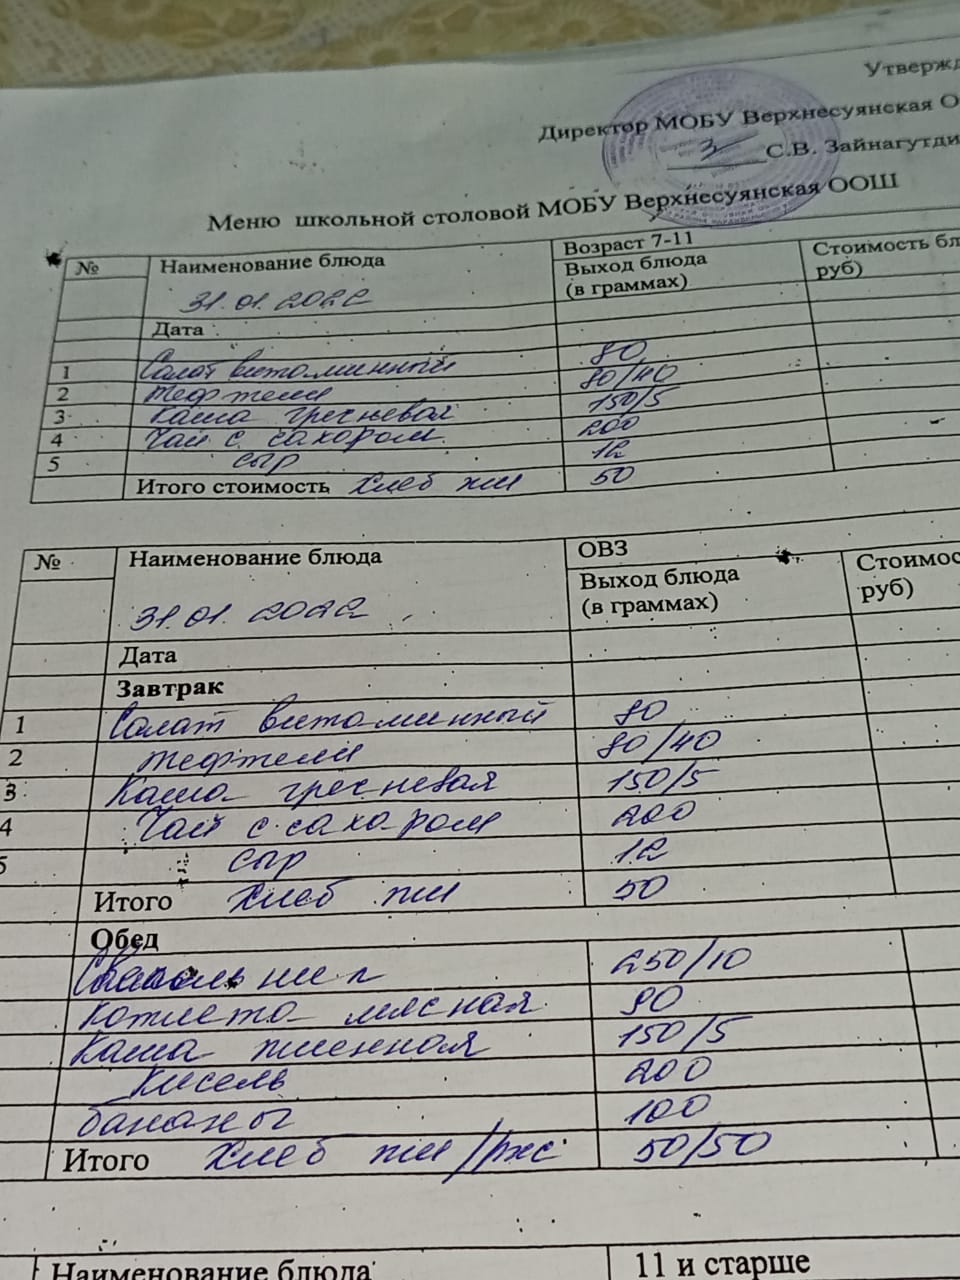 Утвержд
Директор МОБУ Верхнесуянская О
С.В. Зайнагутди
Меню школьной столовой МОБУ Верхнесуянская ООШ
№ Наименование блюда Возраст 7-11 Стоимость бл
31.01.2022 Выход блюда (в граммах) руб)
Дата
1 Салат витаминный 80
2 Тефтели 80/40
3 Каша гречневая 150/5
4 Чай с сахаром 200
5 сыр 12
Итого стоимость хлеб пш 50
№ Наименование блюда ОВЗ Стоимос
31.01.2022 Выход блюда (в граммах) руб)
Дата
Завтрак
1 Салат витаминный 80
2 тефтели 80/40
3 Каша гречневая 150/5
4 Чай с сахаром 200
5 сыр 12
Итого хлеб пш 50
Обед
250/10
Котлета мясная 90
Каша пшенная 150/5
Кисель 200
бананы 100
Итого хлеб пш/рж 50/50
Наименование блюда 11 и старше